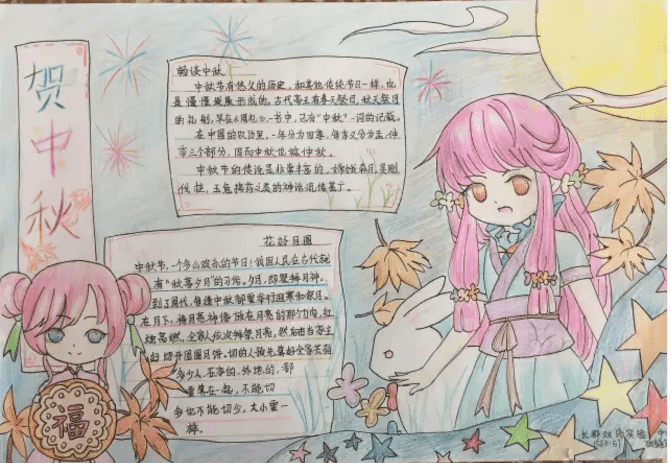 贺中秋
畅谈中秋
中秋节有悠久的历史，和其他传统节日一样，也
是慢慢发展形成的。古代帝王有春天祭日，秋天祭月
的礼制，早在《周礼》一书中，已有“中秋”一词的记载。
在中国的农历里，一年分为四季，每季又分为孟、仲、
季三个部分，因而中秋也称仲秋。
中秋节的传说是非常丰富的，嫦娥奔月，吴刚
伐桂，玉兔捣药之类的神话流传甚广。
花好月圆
中秋节，一个多么欢乐的节日！我国人民在古代就
有“秋暮夕月”的习俗。夕月，即祭拜月神。
到了周代，每逢中秋都要举行迎寒和祭月。
在月下，将月亮神像放在月亮的那个方向，红
烛高燃，全家人依次拜祭月亮，然后由当家主
妇切开团圆月饼。切的人预先算好全家共有
多少人，在家的，外地的，都
要算在一起，不能切
多也不能切少，大小要一
样。
福